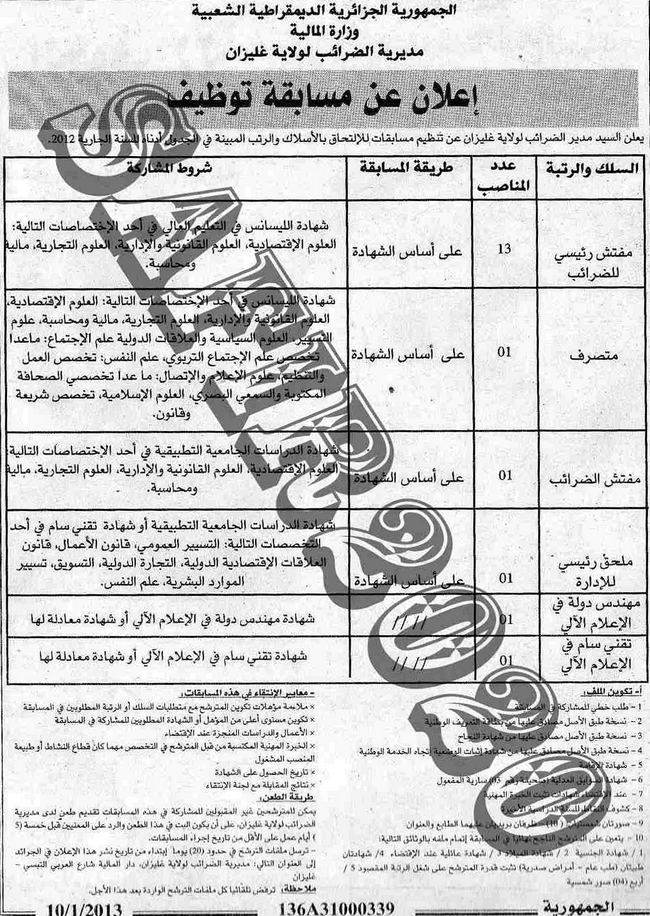 الجمهورية الجزائرية الديمقراطية الشعبية
وزارة المالية
مديرية الضرائب لولاية غليزان
إعلان عن مسابقة توظيف
يعلن السيد مدير الضرائب لولاية غليزان عن تنظيم مسابقات للإلتحاق بالأسلاك والرتب المبينة في الجدول أدناه للسنة الجارية 2012.
السلك والرتبة
عدد
المناصب
طريقة المسابقة
شروط المشاركة
مفتش رئيسي
للضرائب
13
على أساس الشهادة
شهادة الليسانس في التعليم العالي في أحد الإختصاصات التالية:
العلوم الإقتصادية، العلوم القانونية والإدارية، العلوم التجارية، مالية
ومحاسبة.
متصرف
01
على أساس الشهادة
شهادة الليسانس في أحد الإختصاصات التالية: العلوم الإقتصادية،
العلوم القانونية والإدارية، العلوم التجارية، مالية ومحاسبة، علوم
التسيير، العلوم السياسية والعلاقات الدولية علم الإجتماع: ماعدا
تخصص علم الإجتماع التربوي، علم النفس: تخصص العمل
والتنظيم، علوم الإعلام والإتصال: ما عدا تخصصي الصحافة
المكتوبة والسمعي البصري، العلوم الإسلامية، تخصص شريعة
وقانون.
مفتش الضرائب
01
على أساس الشهادة
شهادة الدراسات الجامعية التطبيقية في أحد الإختصاصات التالية:
العلوم الإقتصادية، العلوم القانونية والإدارية، العلوم التجارية، مالية
ومحاسبة.
ملحق رئيسي
للإدارة
01
على أساس الشهادة
شهادة الدراسات الجامعية التطبيقية أو شهادة تقني سام في أحد
التخصصات التالية: التسيير العمومي، قانون الأعمال، قانون
العلاقات الإقتصادية الدولية، التجارة الدولية، التسويق، تسيير
الموارد البشرية، علم النفس.
مهندس دولة في
الإعلام الآلي
01
// //
شهادة مهندس دولة في الإعلام الآلي أو شهادة معادلة لها
تقني سام في
الإعلام الآلي
01
// //
شهادة تقني سام في الإعلام الآلي أو شهادة معادلة لها
أ- تكوين الملف:
1 - طلب خطي للمشاركة في المسابقة
2 - نسخة طبق الأصل مصادق عليها من بطاقة التعريف الوطنية
3 - نسخة طبق الأصل مصادق عليها من شهادة النجاح
4 - نسخة طبق الأصل مصادق عليها من شهادة إثبات الوضعية إتجاه الخدمة الوطنية
5 - شهادة الإقامة
6 - شهادة السوابق العدلية (صحيفة رقم 03) سارية المفعول
7 - عند الإقتضاء شهادات تثبت الخبرة المهنية
8 - كشوف النقاط للسنة الدراسية الأخيرة
9 - صورتان شمسيتان (10) ظرفان بريديان عليهما الطابع والعنوان
10 - يتعين على المترشح الناجح نهائيا في المسابقة إتمام ملفه بالوثائق التالية:
1 / شهادة الجنسية 2 / شهادة الميلاد 3 / شهادة عائلية عند الإقتضاء 4/ شهادتان
طبيتان (طب عام - أمراض صدرية) تثبت قدرة المترشح على شغل الرتبة المقصود 5 /
أربع (04) صور شمسية
- معايير الإنتقاء في هذه المسابقات:
× ملاءمة مؤهلات تكوين المترشح مع متطلبات السلك أو الرتبة المطلوبين في المسابقة
× تكوين مستوى أعلى من المؤهل أو الشهادة المطلوبين للمشاركة في المسابقة
× الأعمال والدراسات المنجزة عند الإقتضاء
× الخبرة المهنية المكتسبة من قبل المترشح في التخصص مهما كان قطاع النشاط أو طبيعة
المنصب المشغول
× تاريخ الحصول على الشهادة
× نتائج المقابلة مع لجنة الإنتقاء
طريقة الطعن:
يمكن للمترشحين غير المقبولين للمشاركة في هذه المسابقات تقديم طعن لدى مديرية
الضرائب لولاية غليزان، على أن يكون البت في هذا الطعن والرد على المعنيين قبل خمسة (5
) أيام عمل على الأقل من تاريخ إجراء المسابقات.
- ترسل ملفات الترشح في حدود (20) يوما إبتداء من تاريخ نشر هذا الإعلان في الجرائد
إلى العنوان التالي: مديرية الضرائب لولاية غليزان، دار المالية شارع العربي التبسي -
غليزان
ملاحظة: ترفض تلقائيا كل ملفات الترشح الواردة بعد هذا الأجل.
الجمهورية
136A31000339
10/1/2013